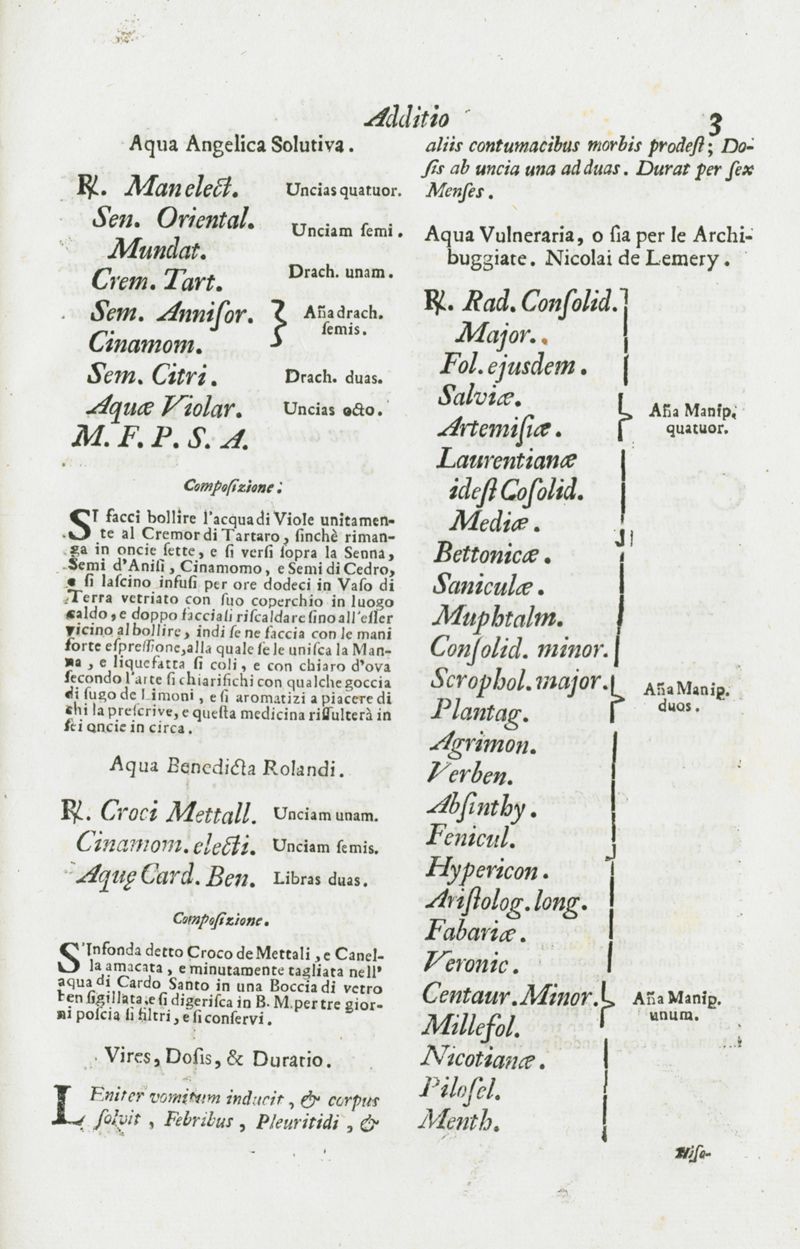 Additio 3
Aqua Angelica Solutiva.
℞. Man elect. Uncias quatuor.
Sen. Oriental.
Mundat. Unciam ſemi.
Crem. Tart. Drach. unam.
Sem. Anniſor. Aña drach.
Cinamom. ſemis.
Sem. Citri. Drach. duas.
Aquæ Violar. Uncias octo.
M. F. P. S. A.
Compoſizione.
SI facci bollire l'acqua di Viole unitamen-
te al Cremor di Tartaro, ſinchè riman-
ga in oncie ſette, e ſi verſi ſopra la Senna,
Semi d'Aniſi, Cinamomo, e Semi di Cedro,
e ſi laſcino infuſi per ore dodeci in Vaſo di
Terra vetriato con ſuo coperchio in luogo
caldo, e doppo facciaſi riſcaldare ſino all'eſſer
vicino al bollire, indi ſe ne faccia con le mani
forte eſpreſſione, alla quale ſe le uniſca la Man-
na, e liquefatta ſi coli, e con chiaro d'ova
ſecondo l'arte ſi chiarifichi con qualche goccia
di ſugo de Limoni, e ſi aromatizi a piacere di
chi la preſcrive, e queſta medicina riſſulterà in
ſei oncie in circa.
Aqua Benedicta Rolandi.
℞. Croci Mettall. Unciam unam.
Cinamom. electi. Unciam ſemis.
Aquę Card. Ben. Libras duas.
Compoſizione.
S'Infonda detto Croco de Mettali, e Canel-
la amacata, e minutamente tagliata nell'
aqua di Cardo Santo in una Boccia di vetro
ben ſigillata, e ſi digeriſca in B. M. per tre gior-
ni poſcia ſi filtri, e ſi conſervi.
Vires, Doſis, & Duratio.
LEniter vomitum inducit, & corpus
ſolvit, Febribus, Pleuritidi, &
aliis contumacibus morbis prodeſt; Do-
ſis ab uncia una ad duas. Durat per ſex
Menſes.
Aqua Vulneraria, o ſia per le Archi-
buggiate. Nicolai de Lemery.
℞. Rad. Conſolid.
Major.
Fol. ejusdem.
Salviæ. Aña Manip.
Artemiſiæ. quatuor.
Laurentianæ
ideſt Coſolid.
Mediæ.
Bettonicæ.
Saniculæ.
Muphtalm.
Conſolid. minor.
Scrophol. major. Aña Manip.
Plantag. duos.
Agrimon.
Verben.
Abſinthy.
Fenicul.
Hypericon.
Ariſtolog. long.
Fabariæ.
Veronic.
Centaur. Minor. Aña Manip.
Millefol. unum.
Nicotianæ.
Piloſel.
Menth.
Hiſo-